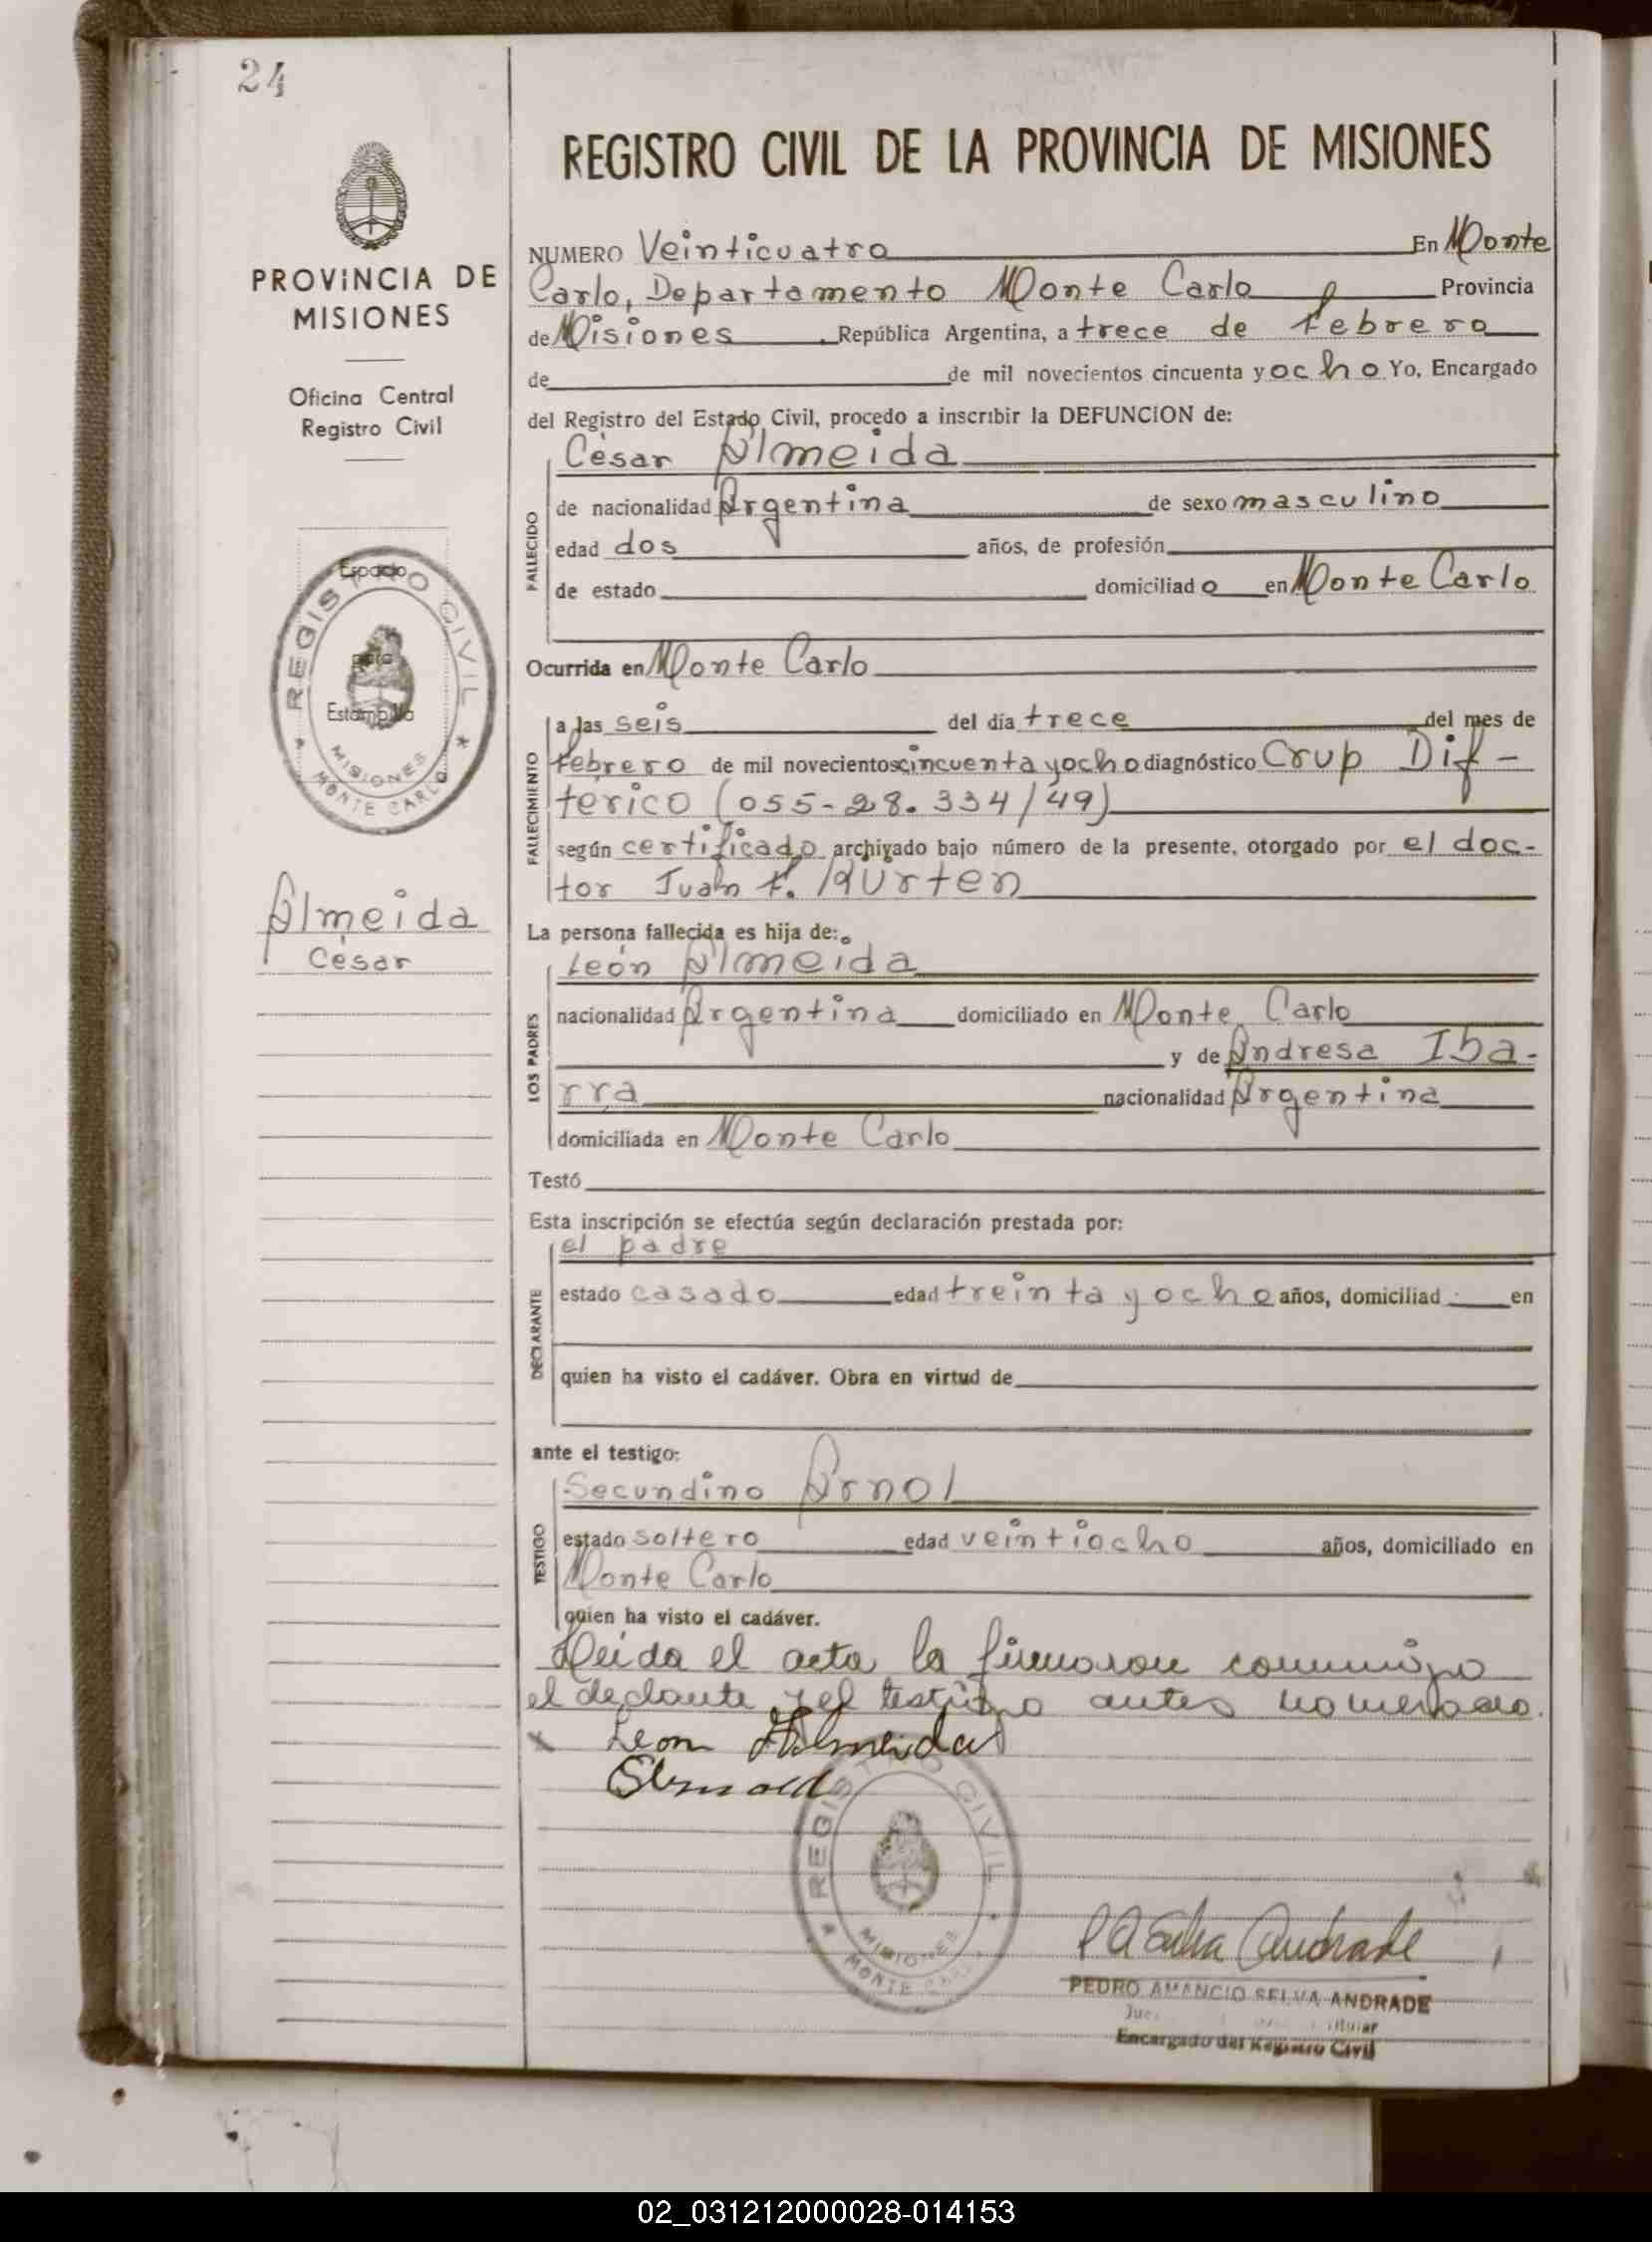 24
PROVINCIA DE
MISIONES
Oficina Central
Registro Civil
Espacio
para
Estampilla
REGISTRO CIVIL
MISIONES
MONTE CARLO
Almeida
César
REGISTRO CIVIL DE LA PROVINCIA DE MISIONES
NUMERO Veinticuatro En Monte
Carlo, Departamento Monte Carlo Provincia
de Misiones República Argentina, a trece de febrero
de de mil novecientos cincuenta y ocho Yo, Encargado
del Registro del Estado Civil, procedo a inscribir la DEFUNCION de:
César Almeida
FALLECIDO
de nacionalidad Argentina de sexo masculino
edad dos años, de profesión
de estado domiciliado en Monte Carlo
Ocurrida en Monte Carlo
FALLECIMIENTO
a las seis del día trece del mes de
febrero de mil novecientos cincuenta y ocho diagnóstico Crup Dif-
térico (055-28.334/49)
según certificado archivado bajo número de la presente, otorgado por el doc-
tor Juan F. Kurten
La persona fallecida es hija de:
León Almeida
LOS PADRES
nacionalidad Argentina domiciliado en Monte Carlo
y de Andresa Iba-
rra nacionalidad Argentina
domiciliada en Monte Carlo
Testó
Esta inscripción se efectúa según declaración prestada por:
el padre
DECLARANTE
estado casado edad treinta y ocho años, domiciliad en
quien ha visto el cadáver. Obra en virtud de
ante el testigo:
Secundino Arnol
TESTIGO
estado soltero edad veintiocho años, domiciliado en
Monte Carlo
quien ha visto el cadáver.
Leida el acta la firmaron conmigo
el declante y el testigo antes nomerado.
x Leon Almeida
REGISTRO CIVIL
MISIONES
MONTE CARLO
PASelva Andrade
PEDRO AMANCIO SELVA ANDRADE
Encargado del Registro Civil
02_031212000028-014153